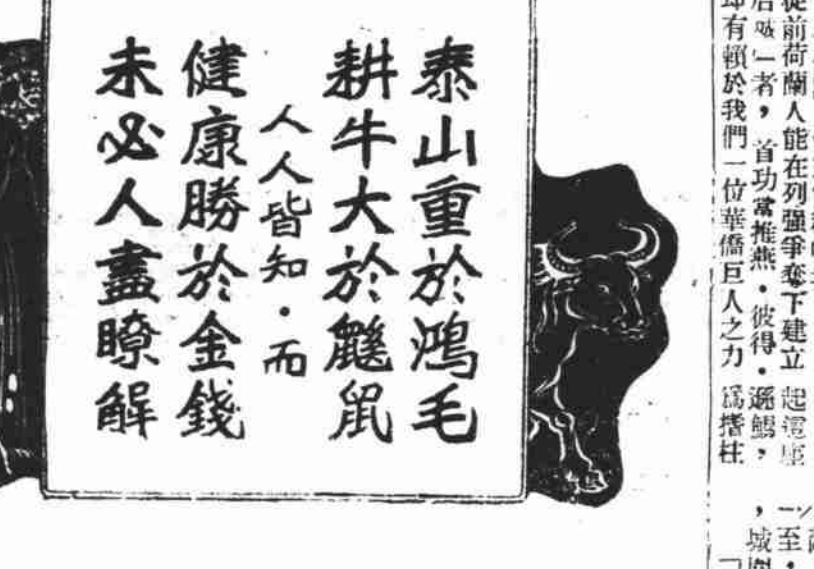 泰山重於鴻毛
耕牛大於鼷鼠
人人皆知·而
健康勝於金錢
未必人盡瞭解
從前荷蘭人能在列强爭奪下建立起這座
者,首功當推燕·彼得·遜
却有賴於我們一位華僑巨人之力爲撘柱